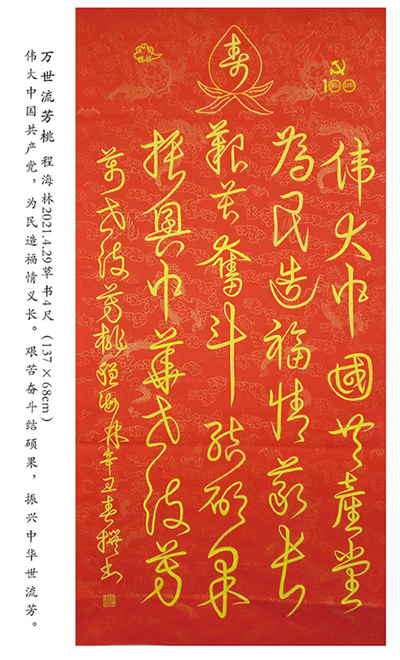 寿
100
伟大中國共產黨
為民造福情義长
艱苦奮斗结硕果
振興中華世流芳
萬世流芳桃 程海林辛丑春撰书
万世流芳桃 程海林2021.4.29草书4尺（137×68cm）
伟大中国共产党，为民造福情义长。艰苦奋斗结硕果，振兴中华世流芳。